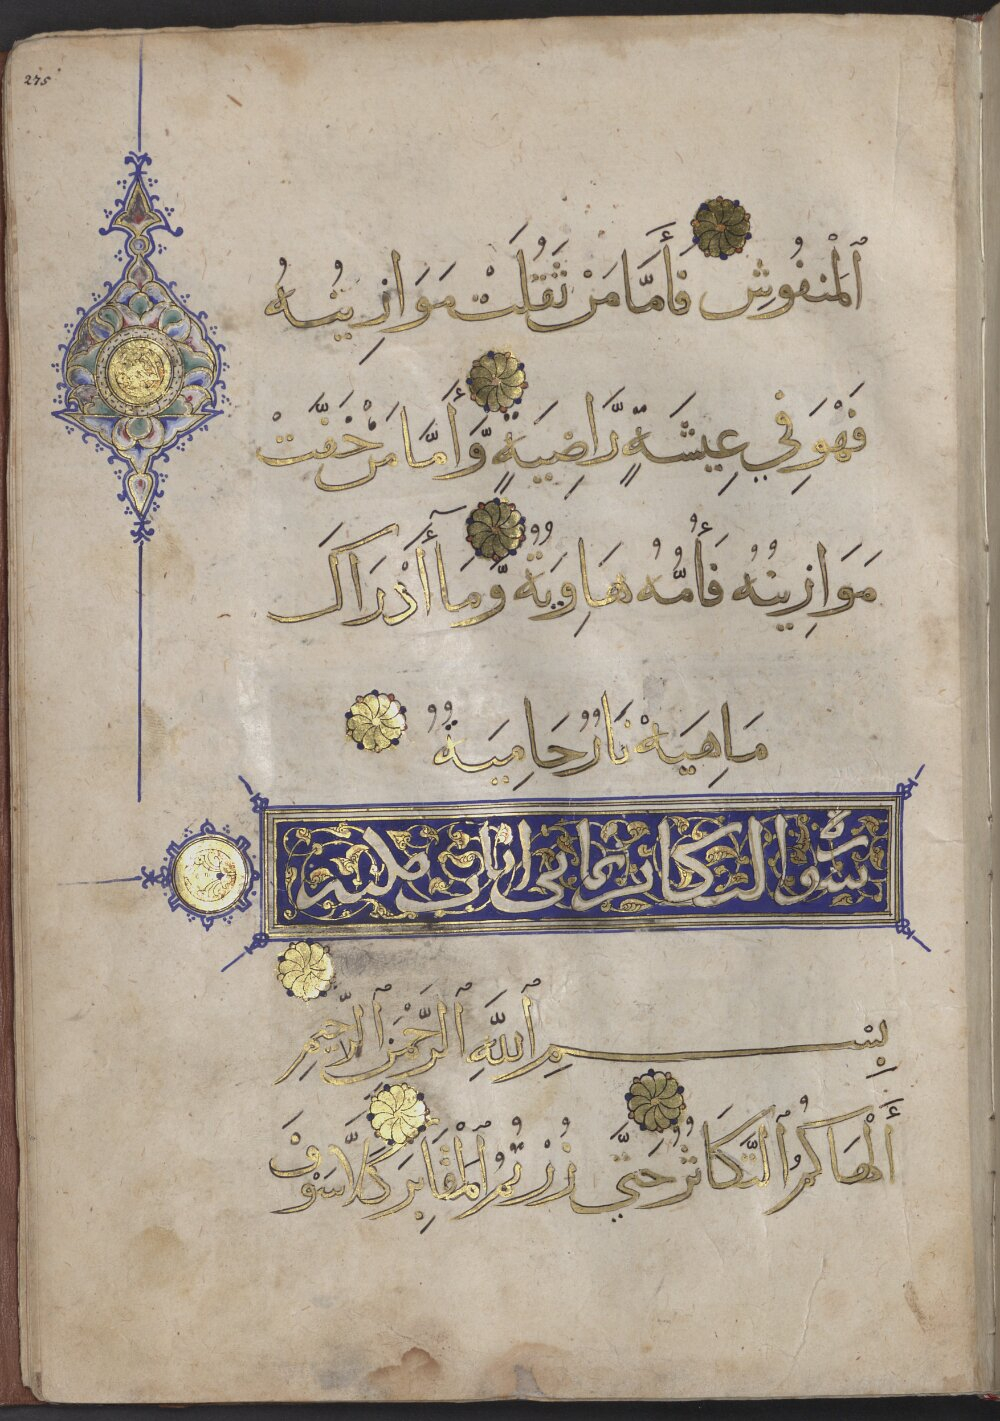 275
ٱلْمَنفُوشِ فَأَمَّا مَنْ ثَقُلَتْ مَوَازِينُهُ
فَهْوَ فِي عِيشَةٍ رَّاضِيَةٍ وَّأَمَّا مَنْ خَفَّتْ
مَوَازِينُهُ فَأُمُّهُ هَاوِيَةٌ وَّمَآ أَدْرَاكَ
مَاهِيَهْ نَارٌ حَامِيَةٌ
سورة التكاثر ثماني ايات مكية
بِسْمِ ٱللَّهِ ٱلرَّحْمَنِ ٱلرَّحِيمِ
أَلْهَاكُمُ ٱلتَّكَاثُرُ حَتَّى زُرْتُمُ ٱلْمَقَابِرَ كَلَّا سَوْفَ